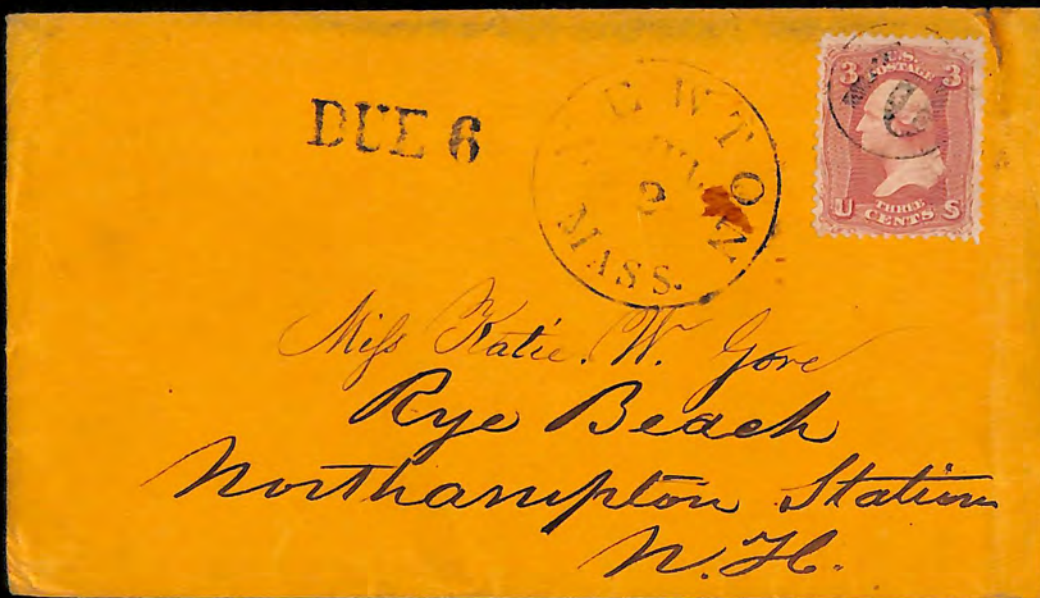 DUE 6
NEWTON
2
MASS.
3 U.S. 3
POSTAGE
6
THREE
U CENTS S
Miss Katie. W. Gore
Rye Beach
Northampton Station
N.H.